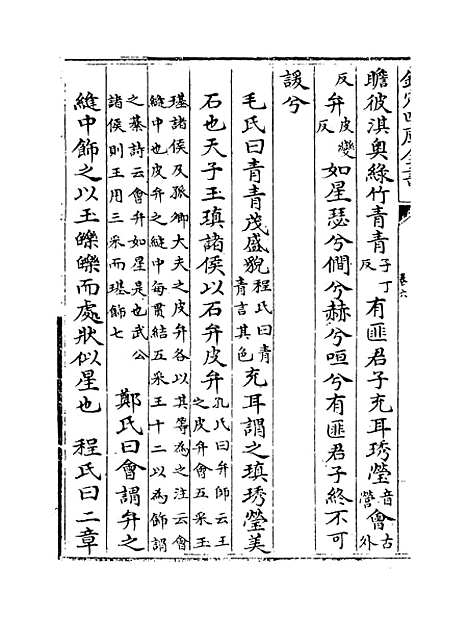 欽定四庫全書 卷六
瞻彼淇奧綠竹青青子丁反有匪君子充耳琇瑩音營會古外
反弁皮變反如星瑟兮僩兮赫兮咺兮有匪君子終不可
諼兮
毛氏曰青青茂盛貌程氏曰青青言其色充耳謂之瑱琇瑩美
石也天子玉瑱諸侯以石弁皮弁孔氏曰弁師云王之皮弁會五采玉
璂諸侯及孤卿大夫之皮弁各以其等為之注云會
縫中也皮弁之縫中每貫結五采玉十二以為飾謂
之綦詩云會弁如星是也武公諸侯則玉用三采而璂飾七 鄭氏曰會謂弁之
縫中飾之以玉皪皪而處狀似星也 程氏曰二章